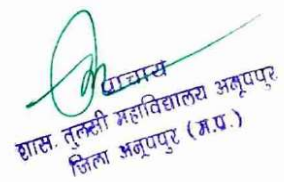 प्राचार्य
शास. तुलसी महाविद्यालय अनूपपुर
जिला अनूपपुर (म.प्र.)